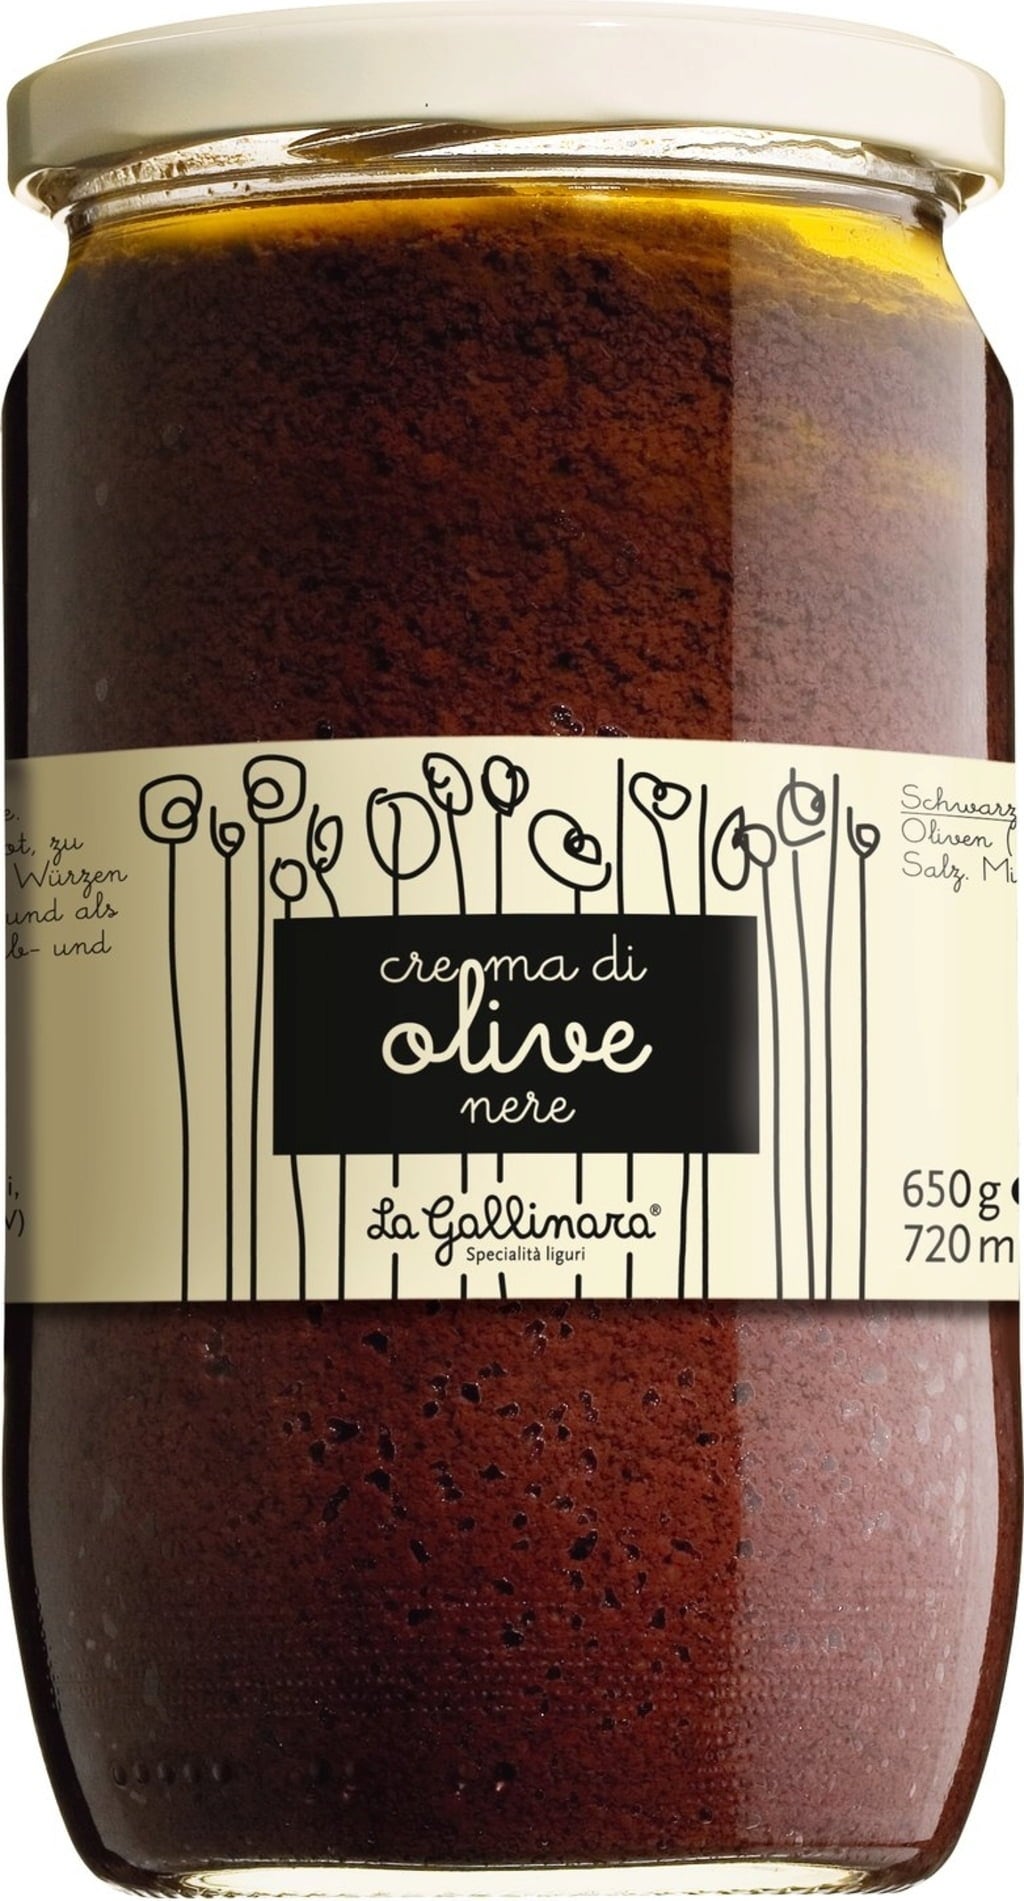 zu
Würzen
und als
und
crema di
olive
nere
La Gallinara®
Specialità liguri
Oliven
Salz.
650 g
720